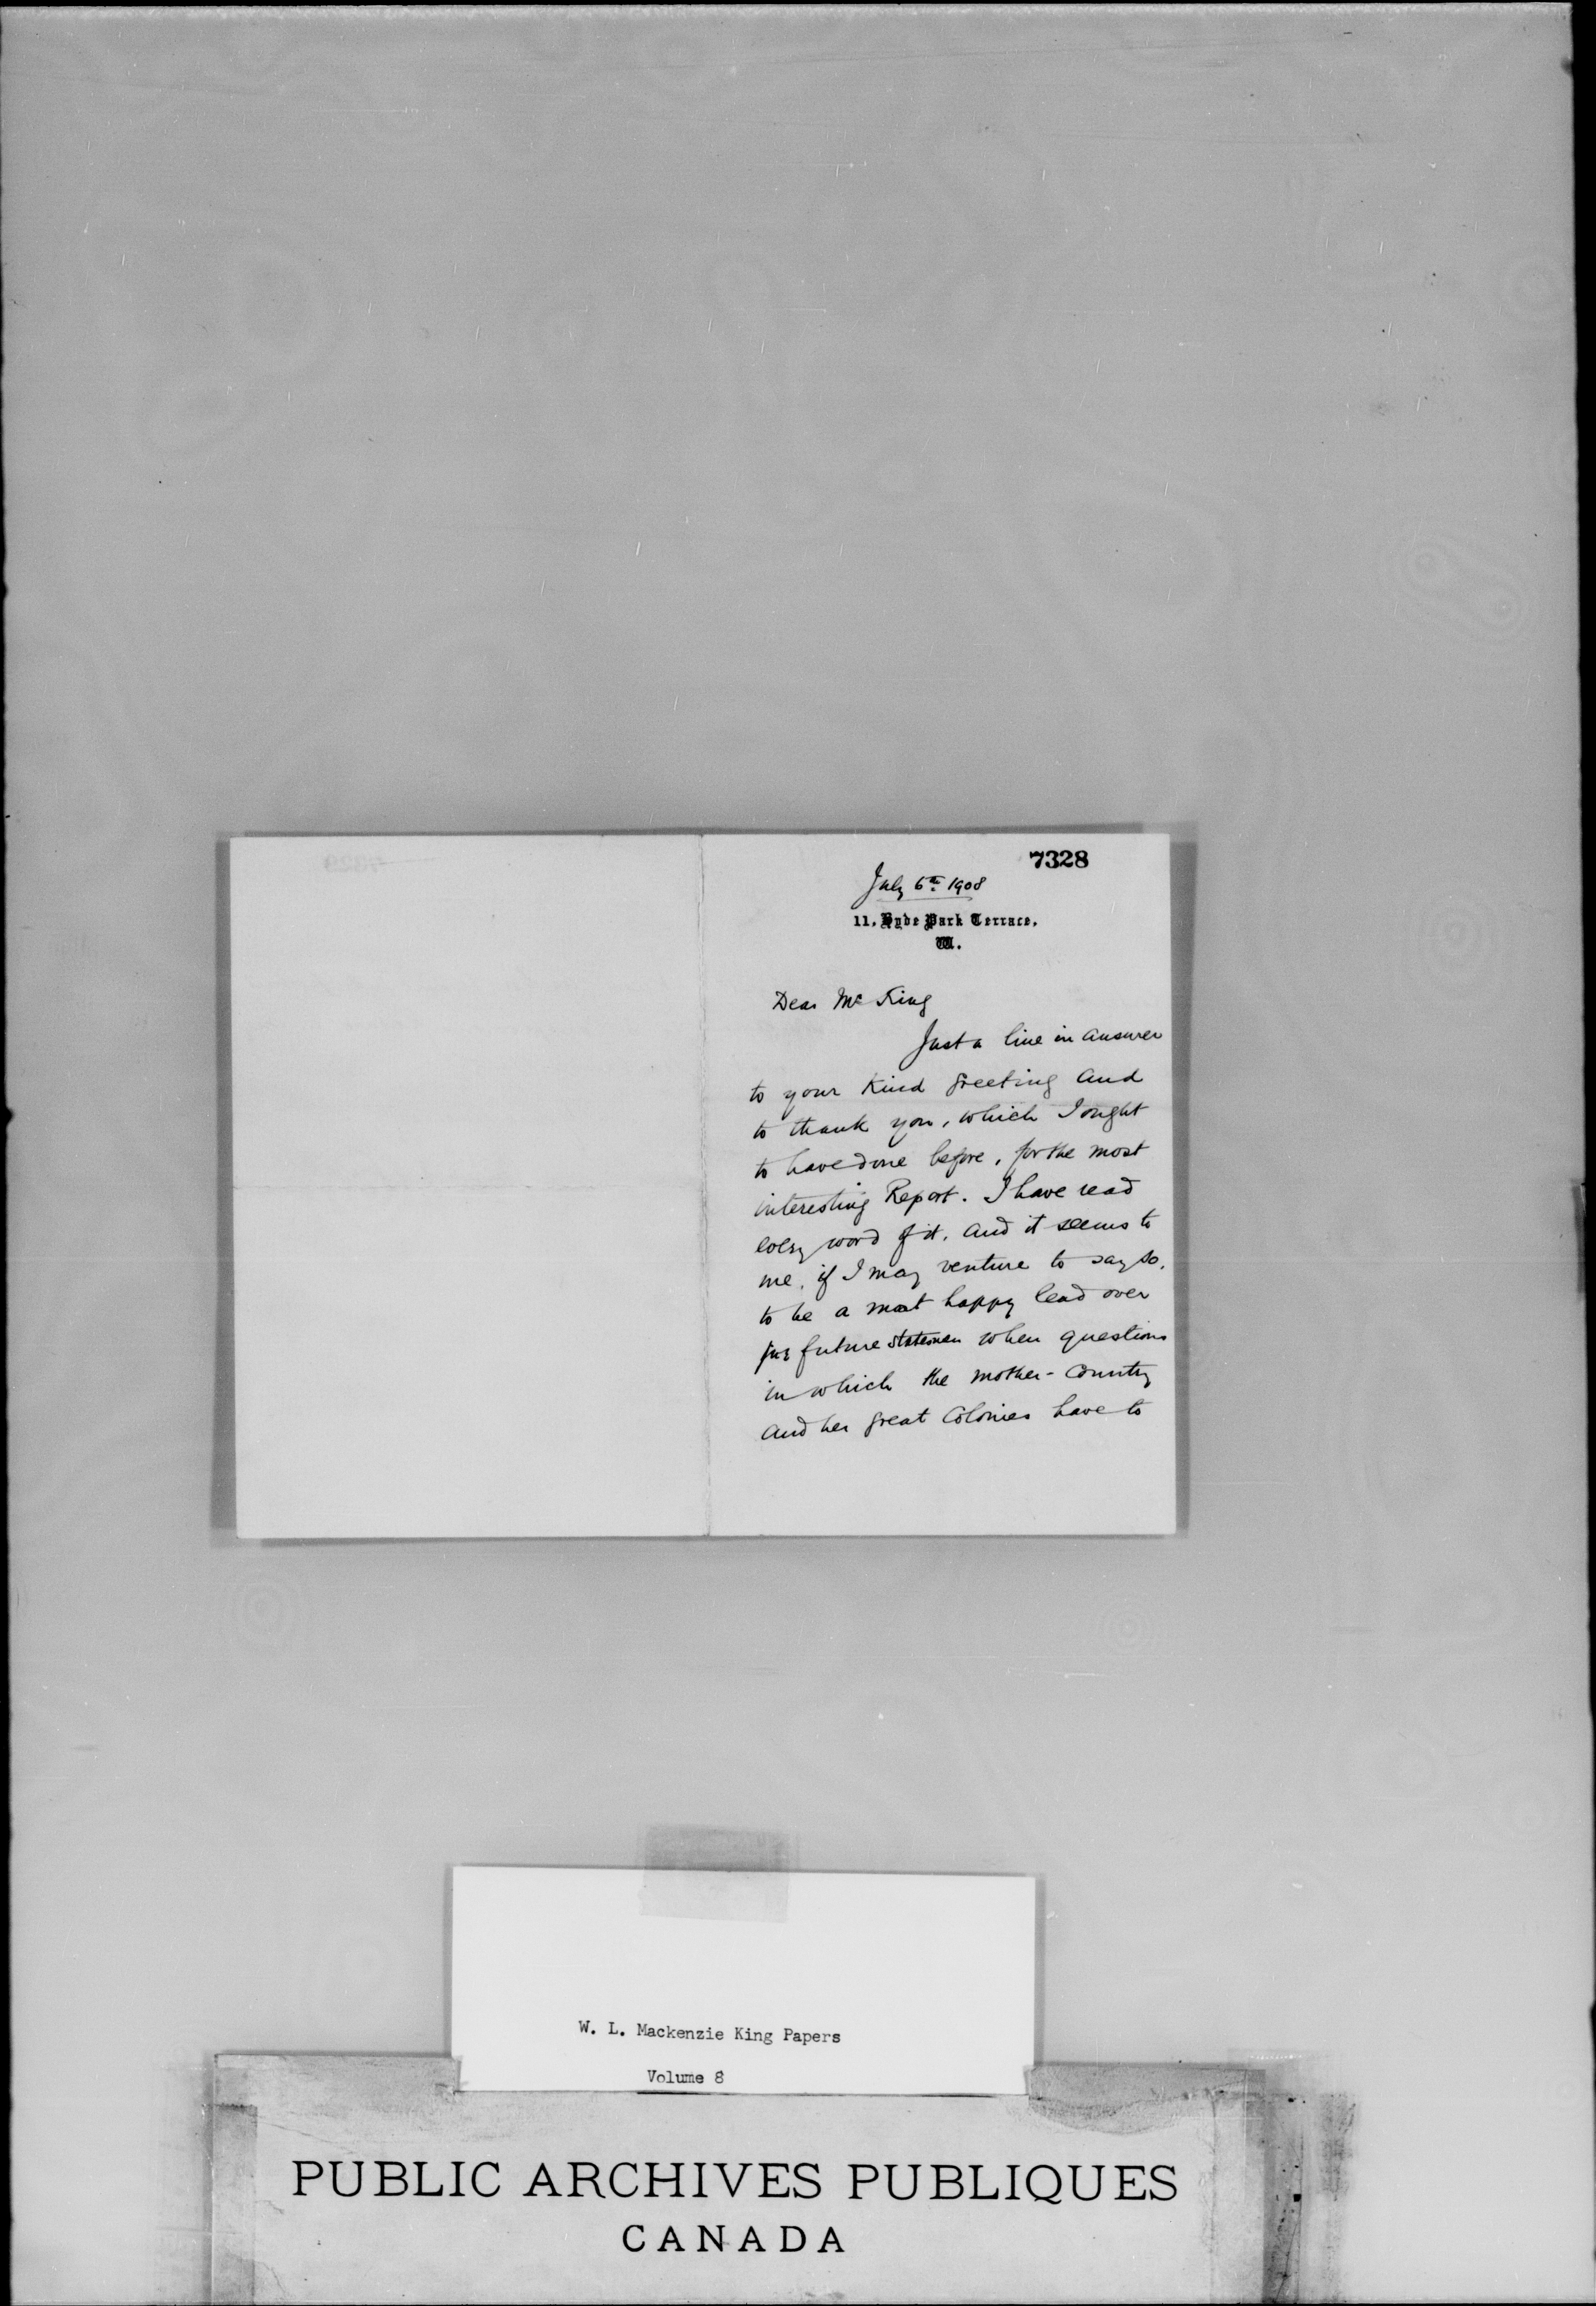 7328
July 6th 1908
11, Hyde Park Terrace,
W.
Dear Mr King
Just a line in answer
to your kind greeting and
to thank you, which I ought
to have done before, for the most
interesting Report. I have read
every word of it, and it seems to
me, if I may venture to say so,
to be a most happy lead over
for future statesmen when questions
in which the mother-country
and her great Colonies have to
W. L. Mackenzie King Papers
Volume 8
PUBLIC ARCHIVES PUBLIQUES
CANADA